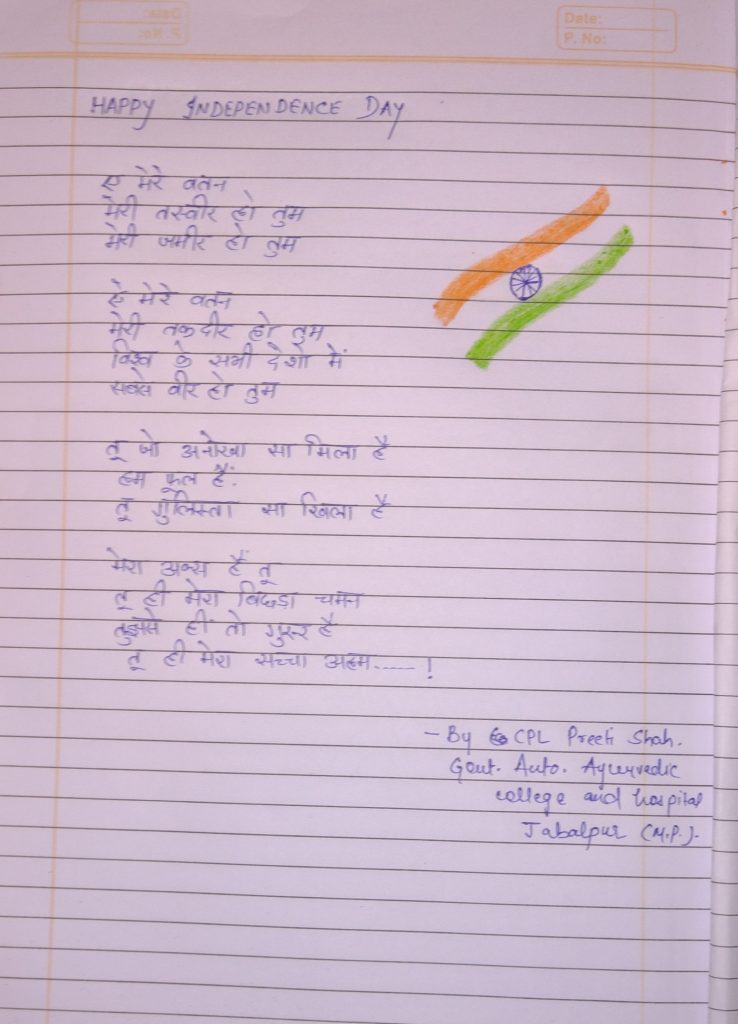 Date:
P. No:
HAPPY INDEPENDENCE DAY
ए मेरे वतन
मेरी तस्वीर हो तुम
मेरी जमीर हो तुम
ऐ मेरे वतन
मेरी तकदीर हो तुम
विश्व के सभी देशो में
सबसे वीर हो तुम
तू जो अनोखा सा मिला है
हम फूल हैं.
तू गुलिस्ता सा खिला है
मेरा अक्स हैं तू
तू ही मेरा बिछडा चमन
तुझसे हीं तो गुरूर है
तू ही मेरा सच्चा अहम.....!
- By CPL Preeti Shah.
Govt. Auto. Ayurvedic
college and hospital
Jabalpur (M.P.).